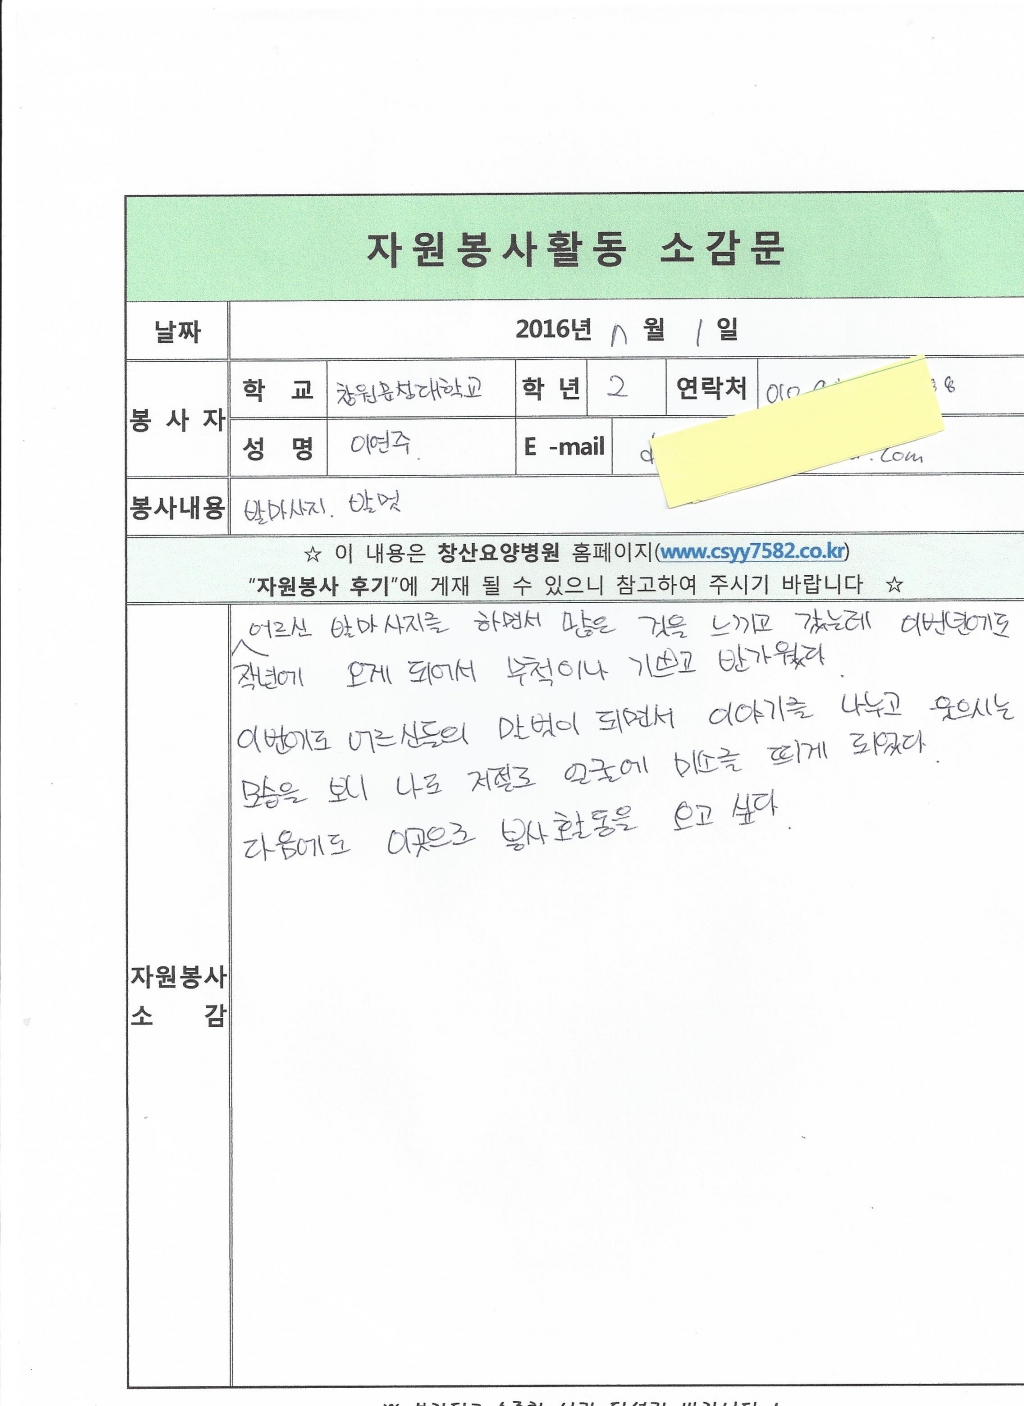 자원봉사활동 소감문
날짜 2016년 7 월 1 일
봉사자 학 교 창원문성대학교 학 년 2 연락처 010
성 명 이연주. E -mail .com
봉사내용 발마사지. 말벗
☆ 이 내용은 창산요양병원 홈페이지(www.csyy7582.co.kr)
"자원봉사 후기"에 게재 될 수 있으니 참고하여 주시기 바랍니다 ☆
자원봉사
소 감
어르신 발마사지를 하면서 많은 것을 느끼고 갔는데 이번년에도
작년에 오게 되어서 무척이나 기쁘고 반가웠다.
이번에도 어르신들의 말벗이 되면서 이야기를 나누고 웃으시는
모습을 보니 나도 저절로 얼굴에 미소를 띄게 되었다.
다음에도 이곳으로 봉사활동을 오고 싶다.